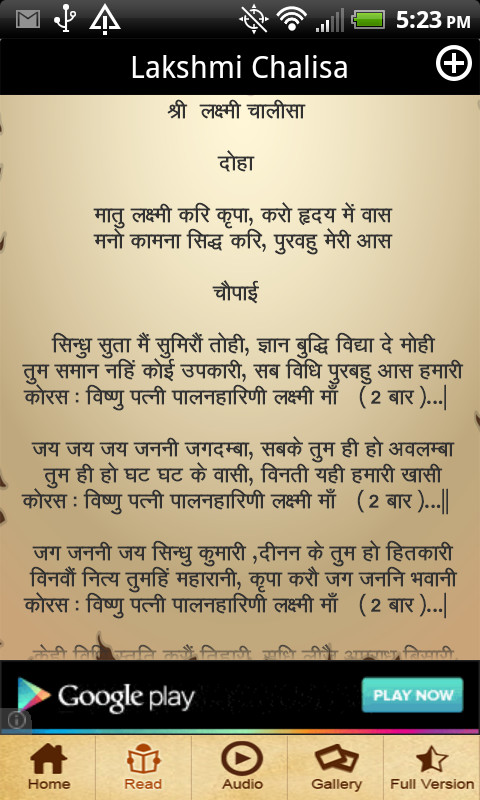 5:23 PM
Lakshmi Chalisa
श्री लक्ष्मी चालीसा
दोहा
मातु लक्ष्मी करि कृपा, करो हृदय में वास
मनो कामना सिद्ध करि, पुरवहु मेरी आस
चौपाई
सिन्धु सुता मैं सुमिरौं तोही, ज्ञान बुद्धि विद्या दे मोही
तुम समान नहिं कोई उपकारी, सब विधि पुरबहु आस हमारी
कोरस : विष्णु पत्नी पालनहारिणी लक्ष्मी माँ ( 2 बार )...|
जय जय जय जननी जगदम्बा, सबके तुम ही हो अवलम्बा
तुम ही हो घट घट के वासी, विनती यही हमारी खासी
कोरस : विष्णु पत्नी पालनहारिणी लक्ष्मी माँ ( 2 बार )...||
जग जननी जय सिन्धु कुमारी ,दीनन के तुम हो हितकारी
विनवौं नित्य तुमहिं महारानी, कृपा करौ जग जननि भवानी
कोरस : विष्णु पत्नी पालनहारिणी लक्ष्मी माँ ( 2 बार )...|
Google play PLAY NOW
Home Read Audio Gallery Full Version